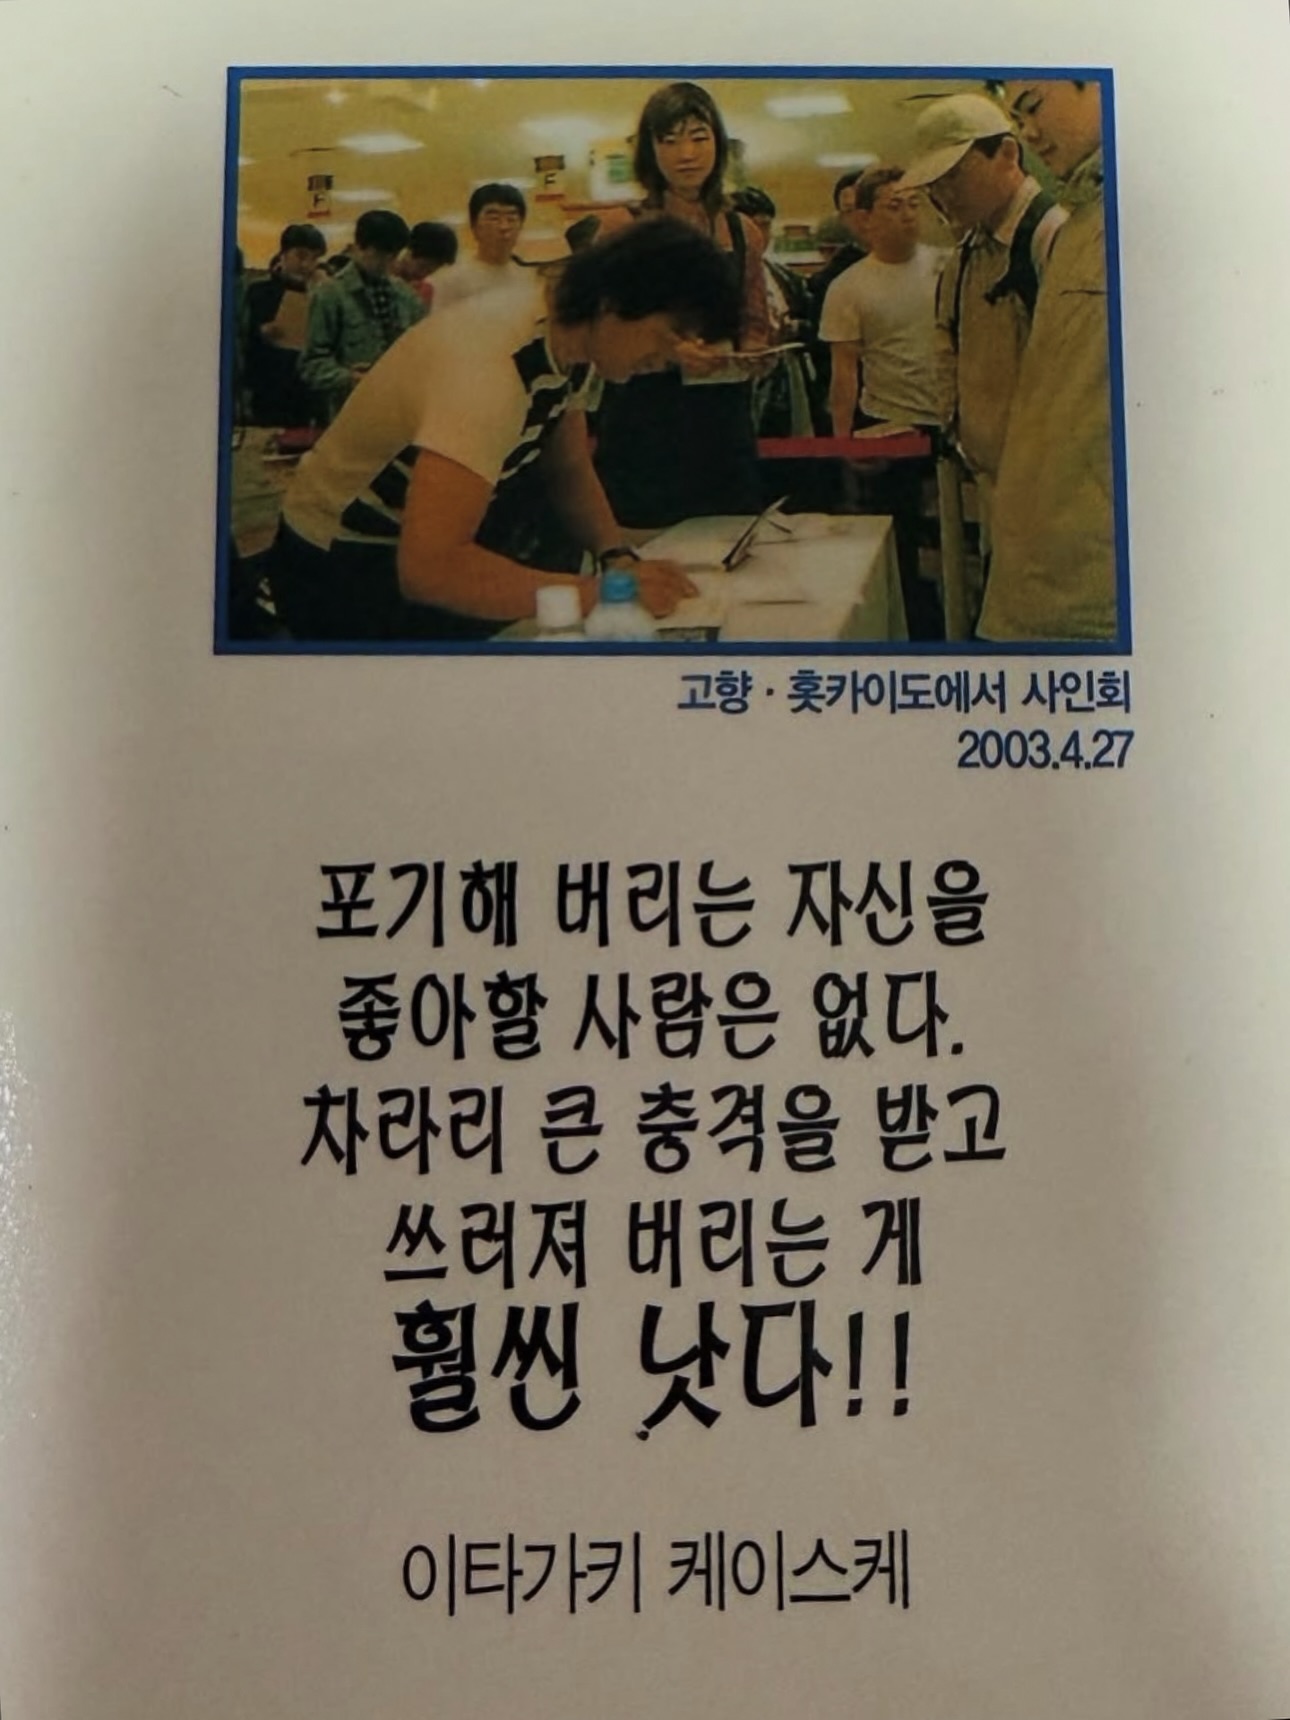 F
F
고향 · 홋카이도에서 사인회
2003.4.27
포기해 버리는 자신을
좋아할 사람은 없다.
차라리 큰 충격을 받고
쓰러져 버리는 게
훨씬 낫다!!
이타가키 케이스케